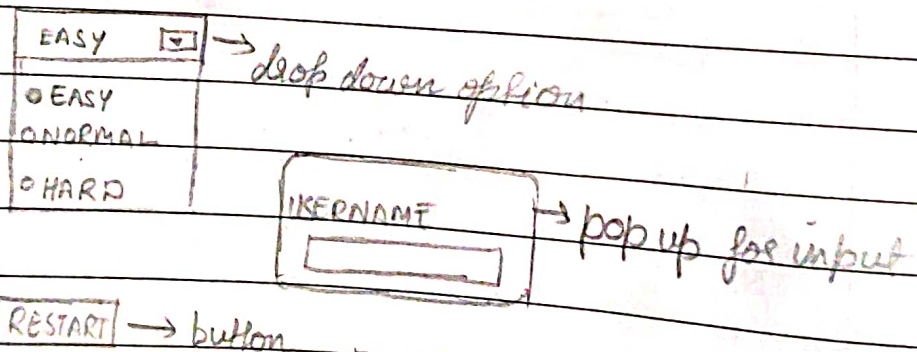 EASY
→ drop down option
EASY
NORMAL
HARD
USERNAME
→ pop up for input
RESTART → button